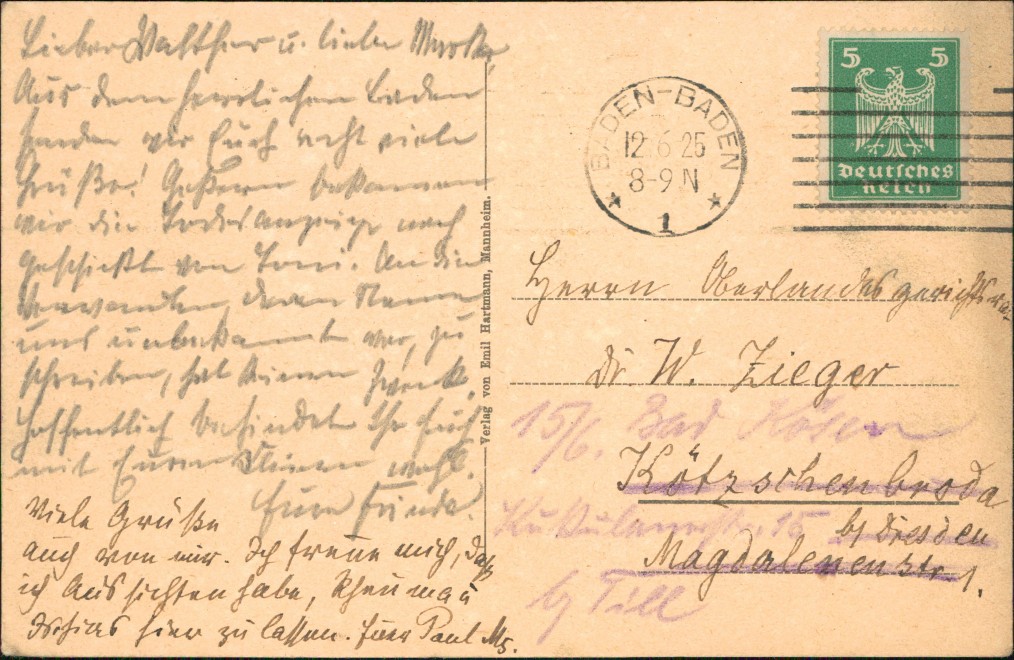 Lieber Walther u. liebe
Aus dem herrlichen Baden
senden wir Euch recht viele
Grüße! Gestern bekamen
wir die Todesanzeige nach
geschickt von Toni. An die
Verwandten, deren Namen
uns unbekannt war, zu
schreiben, hat keinen Zweck.
Hoffentlich befindet Ihr Euch
mit Euren Kleinen wohl.
Eure
Viele Grüße
auch von mir. Ich freue mich, daß
ich Aussichten habe, Rheuma u
Ischias hier zu lassen. Euer Paul
Verlag von Emil Hartmann, Mannheim.
BADEN-BADEN
12.6 25
8-9 N
1
5 5
Deutsches
Reich
Herrn Oberlandesgerichtsra
Dr. W. Zieger
15/6. Bad Kösen
Kötzschenbroda
b/ Dresden
15
Magdalenenstr. 1.
b/ Till